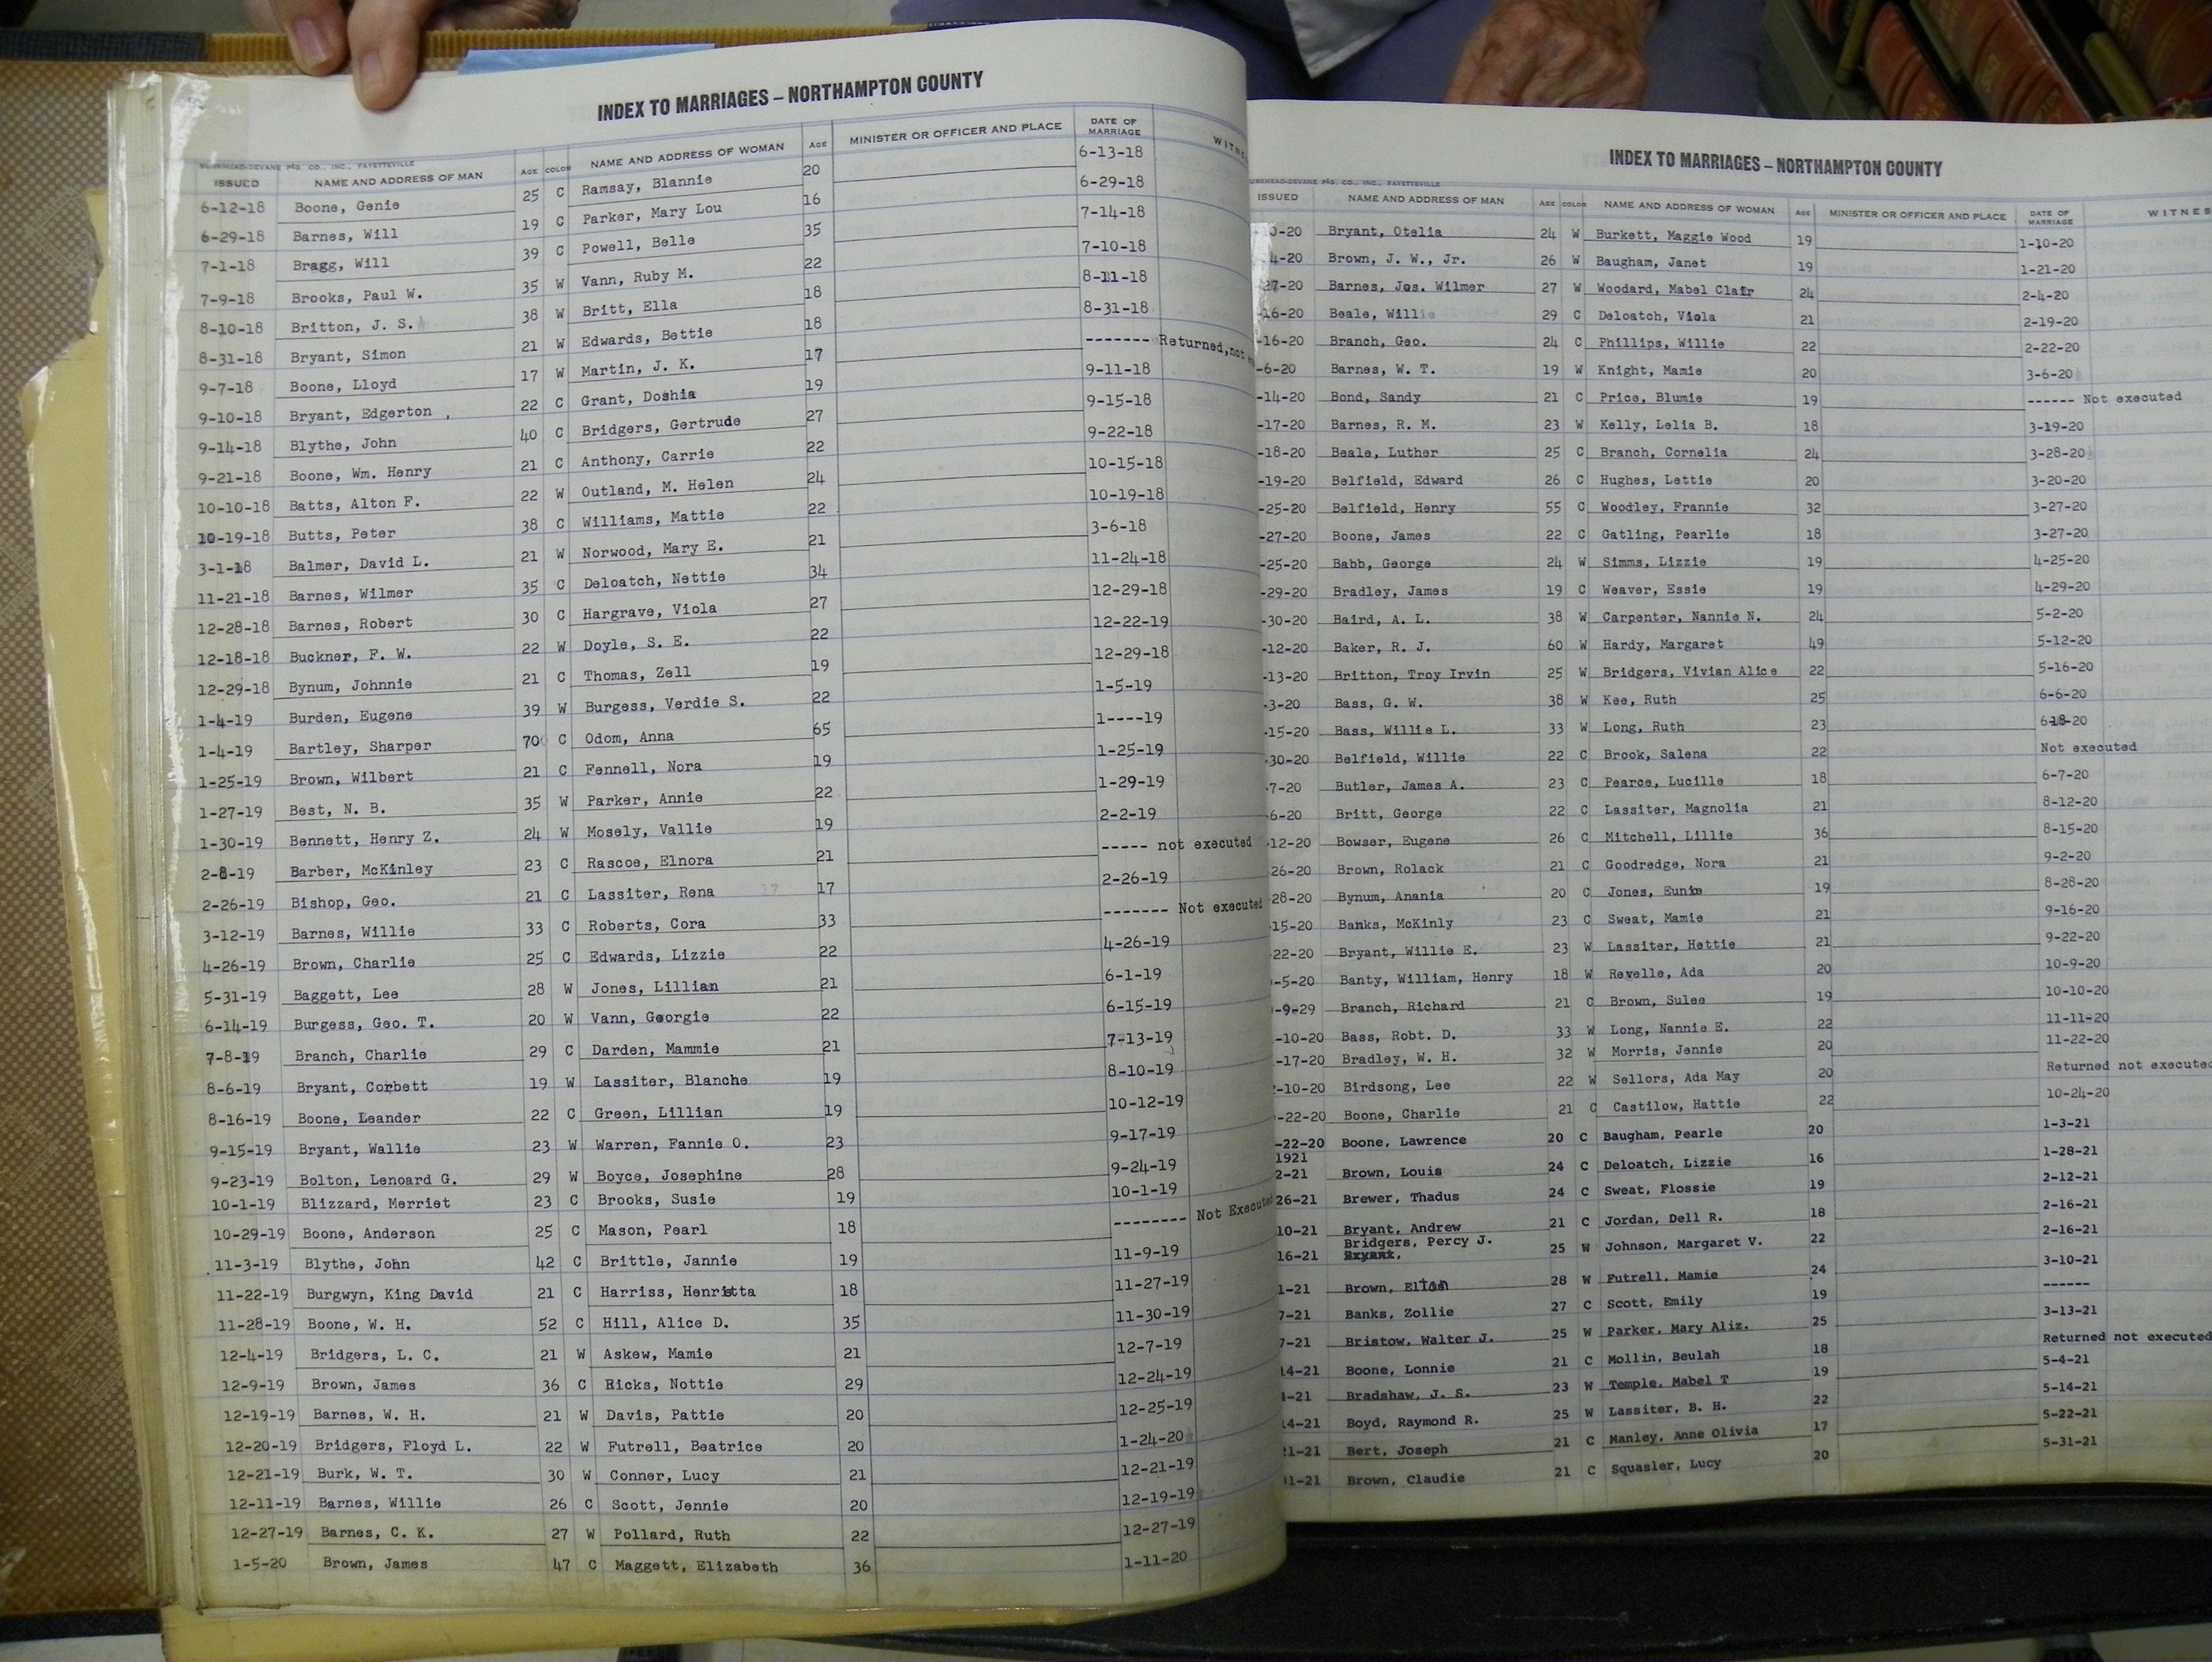 INDEX TO MARRIAGES – NORTHAMPTON COUNTY
CO., INC., FAYETTEVILLE
ISSUED NAME AND ADDRESS OF MAN AGE COLOR NAME AND ADDRESS OF WOMAN AGE MINISTER OR OFFICER AND PLACE DATE OF MARRIAGE
6-12-18 Boone, Genie 25 C Ramsay, Blannie 20 6-13-18
6-29-18 Barnes, Will 19 C Parker, Mary Lou 16 6-29-18
7-1-18 Bragg, Will 39 C Powell, Belle 35 7-14-18
7-9-18 Brooks, Paul W. 35 W Vann, Ruby M. 22 7-10-18
8-10-18 Britton, J. S. 38 W Britt, Ella 18 8-11-18
8-31-18 Bryant, Simon 21 W Edwards, Bettie 18 8-31-18
9-7-18 Boone, Lloyd 17 W Martin, J. K. 17 ------- Returned, not
9-10-18 Bryant, Edgerton , 22 C Grant, Doshia 19 9-11-18
9-14-18 Blythe, John 40 C Bridgers, Gertrude 27 9-15-18
9-21-18 Boone, Wm. Henry 21 C Anthony, Carrie 22 9-22-18
10-10-18 Batts, Alton F. 22 W Outland, M. Helen 24 10-15-18
10-19-18 Butts, Peter 38 C Williams, Mattie 22 10-19-18
3-1-18 Balmer, David L. 21 W Norwood, Mary E. 21 3-6-18
11-21-18 Barnes, Wilmer 35 C Deloatch, Nettie 34 11-24-18
12-28-18 Barnes, Robert 30 C Hargrave, Viola 27 12-29-18
12-18-18 Buckner, F. W. 22 W Doyle, S. E. 22 12-22-19
12-29-18 Bynum, Johnnie 21 C Thomas, Zell 19 12-29-18
1-4-19 Burden, Eugene 39 W Burgess, Verdie S. 22 1-5-19
1-4-19 Bartley, Sharper 70 C Odom, Anna 65 1----19
1-25-19 Brown, Wilbert 21 C Fennell, Nora 19 1-25-19
1-27-19 Best, N. B. 35 W Parker, Annie 22 1-29-19
1-30-19 Bennett, Henry Z. 24 W Mosely, Vallie 19 2-2-19
2-8-19 Barber, McKinley 23 C Rascoe, Elnora 21 ----- not executed
2-26-19 Bishop, Geo. 21 C Lassiter, Rena 17 2-26-19
3-12-19 Barnes, Willie 33 C Roberts, Cora 33 ------- Not executed
4-26-19 Brown, Charlie 25 C Edwards, Lizzie 22 4-26-19
5-31-19 Baggett, Lee 28 W Jones, Lillian 21 6-1-19
6-14-19 Burgess, Geo. T. 20 W Vann, Georgie 22 6-15-19
7-8-19 Branch, Charlie 29 C Darden, Mammie 21 7-13-19
8-6-19 Bryant, Corbett 19 W Lassiter, Blanche 19 8-10-19
8-16-19 Boone, Leander 22 C Green, Lillian 19 10-12-19
9-15-19 Bryant, Wallie 23 W Warren, Fannie O. 23 9-17-19
9-23-19 Bolton, Lenoard G. 29 W Boyce, Josephine 28 9-24-19
10-1-19 Blizzard, Merriet 23 C Brooks, Susie 19 10-1-19
10-29-19 Boone, Anderson 25 C Mason, Pearl 18 -------- Not Executed
11-3-19 Blythe, John 42 C Brittle, Jannie 19 11-9-19
11-22-19 Burgwyn, King David 21 C Harriss, Henrietta 18 11-27-19
11-28-19 Boone, W. H. 52 C Hill, Alice D. 35 11-30-19
12-4-19 Bridgers, L. C. 21 W Askew, Mamie 21 12-7-19
12-9-19 Brown, James 36 C Ricks, Nottie 29 12-24-19
12-19-19 Barnes, W. H. 21 W Davis, Pattie 20 12-25-19
12-20-19 Bridgers, Floyd L. 22 W Futrell, Beatrice 20 1-24-20
12-21-19 Burk, W. T. 30 W Conner, Lucy 21 12-21-19
12-11-19 Barnes, Willie 26 C Scott, Jennie 20 12-19-19
12-27-19 Barnes, C. K. 27 W Pollard, Ruth 22 12-27-19
1-5-20 Brown, James 47 C Maggett, Elizabeth 36 1-11-20
INDEX TO MARRIAGES – NORTHAMPTON COUNTY
CO., INC., FAYETTEVILLE
ISSUED NAME AND ADDRESS OF MAN AGE COLOR NAME AND ADDRESS OF WOMAN AGE MINISTER OR OFFICER AND PLACE DATE OF MARRIAGE WITNES
-20 Bryant, Otelia 24 W Burkett, Maggie Wood 19 1-10-20
4-20 Brown, J. W., Jr. 26 W Baugham, Janet 19 1-21-20
27-20 Barnes, Jos. Wilmer 27 W Woodard, Mabel Clair 24 2-4-20
-16-20 Beale, Willie 29 C Deloatch, Viola 21 2-19-20
-16-20 Branch, Geo. 24 C Phillips, Willie 22 2-22-20
-6-20 Barnes, W. T. 19 W Knight, Mamie 20 3-6-20
-14-20 Bond, Sandy 21 C Price, Blumie 19 ------ Not executed
-17-20 Barnes, R. M. 23 W Kelly, Lelia B. 18 3-19-20
-18-20 Beale, Luther 25 C Branch, Cornelia 24 3-28-20
-19-20 Belfield, Edward 26 C Hughes, Lettie 20 3-20-20
-25-20 Belfield, Henry 55 C Woodley, Frannie 32 3-27-20
-27-20 Boone, James 22 C Gatling, Pearlie 18 3-27-20
-25-20 Babb, George 24 W Simms, Lizzie 19 4-25-20
-29-20 Bradley, James 19 C Weaver, Essie 19 4-29-20
-30-20 Baird, A. L. 38 W Carpenter, Nannie N. 24 5-2-20
-12-20 Baker, R. J. 60 W Hardy, Margaret 49 5-12-20
-13-20 Britton, Troy Irvin 25 W Bridgers, Vivian Alice 22 5-16-20
-3-20 Bass, G. W. 38 W Kee, Ruth 25 6-6-20
-15-20 Bass, Willie L. 33 W Long, Ruth 23 6-18-20
-30-20 Belfield, Willie 22 C Brook, Salena 22 Not executed
-7-20 Butler, James A. 23 C Pearce, Lucille 18 6-7-20
-6-20 Britt, George 22 C Lassiter, Magnolia 21 8-12-20
-12-20 Bowser, Eugene 26 C Mitchell, Lillie 36 8-15-20
26-20 Brown, Rolack 21 C Goodredge, Nora 21 9-2-20
28-20 Bynum, Anania 20 C Jones, Eunie 19 8-28-20
15-20 Banks, McKinly 23 C Sweat, Mamie 21 9-16-20
22-20 Bryant, Willie E. 23 W Lassiter, Hettie 21 9-22-20
-5-20 Banty, William, Henry 18 W Revelle, Ada 20 10-9-20
-9-29 Branch, Richard 21 C Brown, Sulee 19 10-10-20
-10-20 Bass, Robt. D. 33 W Long, Nannie E. 22 11-11-20
-17-20 Bradley, W. H. 32 W Morris, Jennie 20 11-22-20
-10-20 Birdsong, Lee 22 W Sellors, Ada May 20 Returned not executed
-22-20 Boone, Charlie 21 C Castilow, Hattie 22 10-24-20
-22-20 Boone, Lawrence 20 C Baugham, Pearle 20 1-3-21
1921
2-21 Brown, Louis 24 C Deloatch, Lizzie 16 1-28-21
26-21 Brewer, Thadus 24 C Sweat, Flossie 19 2-12-21
10-21 Bryant, Andrew 21 C Jordan, Dell R. 18 2-16-21
Bridgers, Percy J.
16-21 25 W Johnson, Margaret V. 22 2-16-21
1-21 Brown, 28 W Futrell, Mamie 24 3-10-21
7-21 Banks, Zollie 27 C Scott, Emily 19 ------
7-21 Bristow, Walter J. 25 W Parker, Mary Aliz. 25 3-13-21
14-21 Boone, Lonnie 21 C Mollin, Beulah 18 Returned not executed
-21 Bradshaw, J. S. 23 W Temple, Mabel T 19 5-4-21
14-21 Boyd, Raymond R. 25 W Lassiter, B. H. 22 5-14-21
1-21 Bert, Joseph 21 C Manley, Anne Olivia 17 5-22-21
1-21 Brown, Claudie 21 C Squasler, Lucy 20 5-31-21